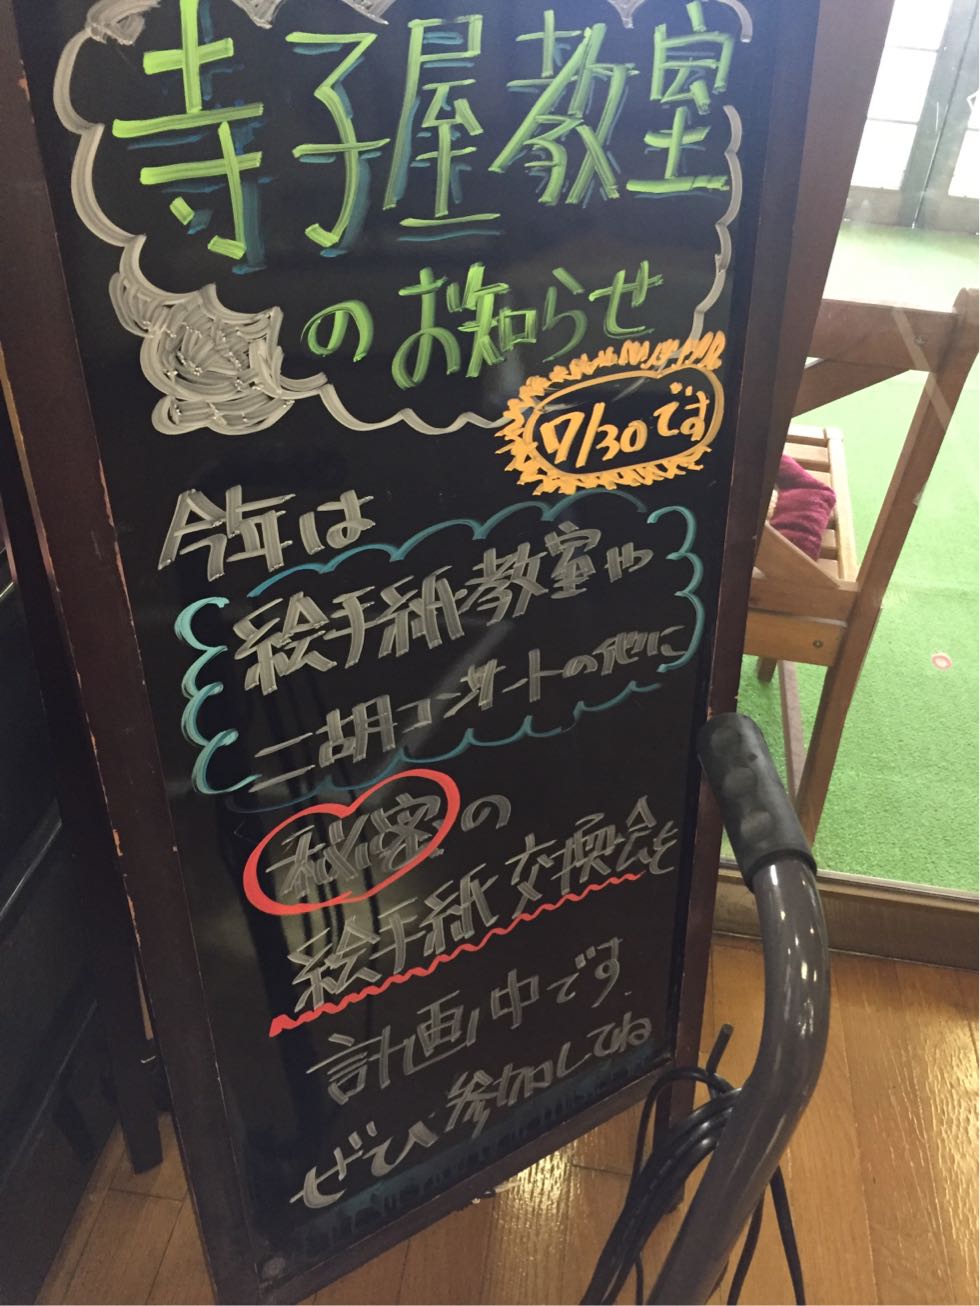 寺子屋教室
のお知らせ
7/30です
今年は
絵手紙教室や
二胡コンサートの他に
秘密の
絵手紙交換会を
計画中です
ぜひ参加してね